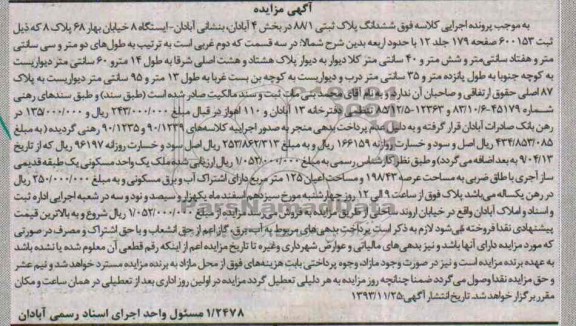 آگهی مزایده
به موجب پرونده اجرایی کلاسه فوق ششدانگ پلاک ثبتی ۸۸/۱ در بخش ۴ آبادان، بنشانی آبادان-ایستگاه ۸ خیابان بهار ۶۸ پلاک ۸ که ذیل
ثبت ۶۰۰۱۵۳ صفحه ۱۷۹ جلد ۱۳ با حدود اربعه بدین شرح شمالا: در سه قسمت که دوم غربی است به ترتیب به طول‌های دو متر و سی سانتی
متر و هفتاد سانتی‌متر و شش متر و ۴۰ سانتی متر کلا دیوار به دیوار پلاک هشتاد و هشت اصلی شرقا به طول ۱۴ مترو ۶۰ سانتی متر دیواریست
به کوچه جنوبا به طول پانزده متر و ۳۵ سانتی متر درب و دیواریست به کوچه بن بست غربا به طول ۱۳ متر و ۹۵ سانتی متر دیواریست به پلاک
۸۷ اصلی حقوق ارتفاقی و صاحبان آن ندارد، بنام آقای ثبت و سند مالکیت صادر شده است (طبق سند) و طبق سندهای رهنی
شماره ۴۵۱۷۹-۸۳/۱۰/۶ و ۱۲۳۶۳-۸۵/۱۲/۵ تنظیمی دفترخانه ۱۳ آبادان و ۱۱۰ اهواز در قبال مبلغ ۲۴۳/۰۰۰/۰۰۰ ریال و ۱۳۵/۰۰۰/۰۰۰ در
رهن بانک صادرات آبادان قرار گرفته و به دلیل عدم پرداخت بدهی منجر به صدور اجراییه کلاسه‌های ۹۰/۱۲۳۹ و ۹۰/۱۲۳۵ رهنی گردیده (به مبلغ
۴۳۴/۸۵۳/۰۸۵ ریال اصل و سود و خسارت روزانه ۱۶۶۱۵۹ ریال و به مبلغ ۲۵۳/۸۶۲/۳۱۳ ریال اصل و سود و خسارت روزانه ۹۶۱۹۷ ریال که از تاریخ
۹۰/۴/۱۳ به بعد اضافه می گردد) و طبق نظر کارشناس رسمی به مبلغ ۱/۰۵۲/۰۰۰/۰۰۰ ریال ارزیابی شده ملک یک واحد مسکونی یک طبقه قدیمی
ساز آجری با طاق ضربی به مساحت عرصه ۱۹۸/۴۳ و مساحت اعیان ۱۲۵ متر مربع دارای اشتراک آب و برق مسکونی و به مبلغ ۳۵۰/۰۰۰/۰۰۰ ریال
در رهن یکساله می‌باشد پلاک فوق از ساعت ۹ الی ۱۲ روز چهارشنبه مورخ سیزدهم اسفند ماه یکهزار و سیصد و نود و سه در شعبه اجرایی اداره ثبت
و اسناد و املاک آبادان واقع در خیابان اروند ساحلی از طریق مزایده به فروش می‌رسد مزایده از مبلغ ۱/۰۵۲/۰۰۰/۰۰۰ ریال شروع و به بالاترین قیمت
پیشنهادی نقدا فروخته می‌شود لازم به ذکر است پرداخت بدهی های مربوط به آب، برق، گاز اعم از حق انشعاب و یا حق اشتراک و مصرف در صورتی
که مورد مزایده دارای آنها باشد و نیز بدهی‌های مالیاتی و عوارض شهرداری وغیره تا تاریخ مزایده اعم از اینکه رقم قطعی آن معلوم شده یا نشده باشد
به عهده برنده مزایده است و نیز در صورت وجود مازاد وجوه پرداختی بابت هزینه‌های فوق از محل مازاد به برنده مزایده مسترد خواهد شد و نیم عشر
و حق مزایده نقدا وصول می گردد ضمنا چنانچه روز مزایده به هر دلیلی تعطیل گردد مزایده در اولین روز اداری بعد از تعطیلی در همان ساعت و مکان
مقرر برگزار خواهد شد. تاریخ انتشار آگهی: ۱۳۹۳/۱۱/۲۵
۱/۲۴۷۸ مسئول واحد اجرای اسناد رسمی آبادان